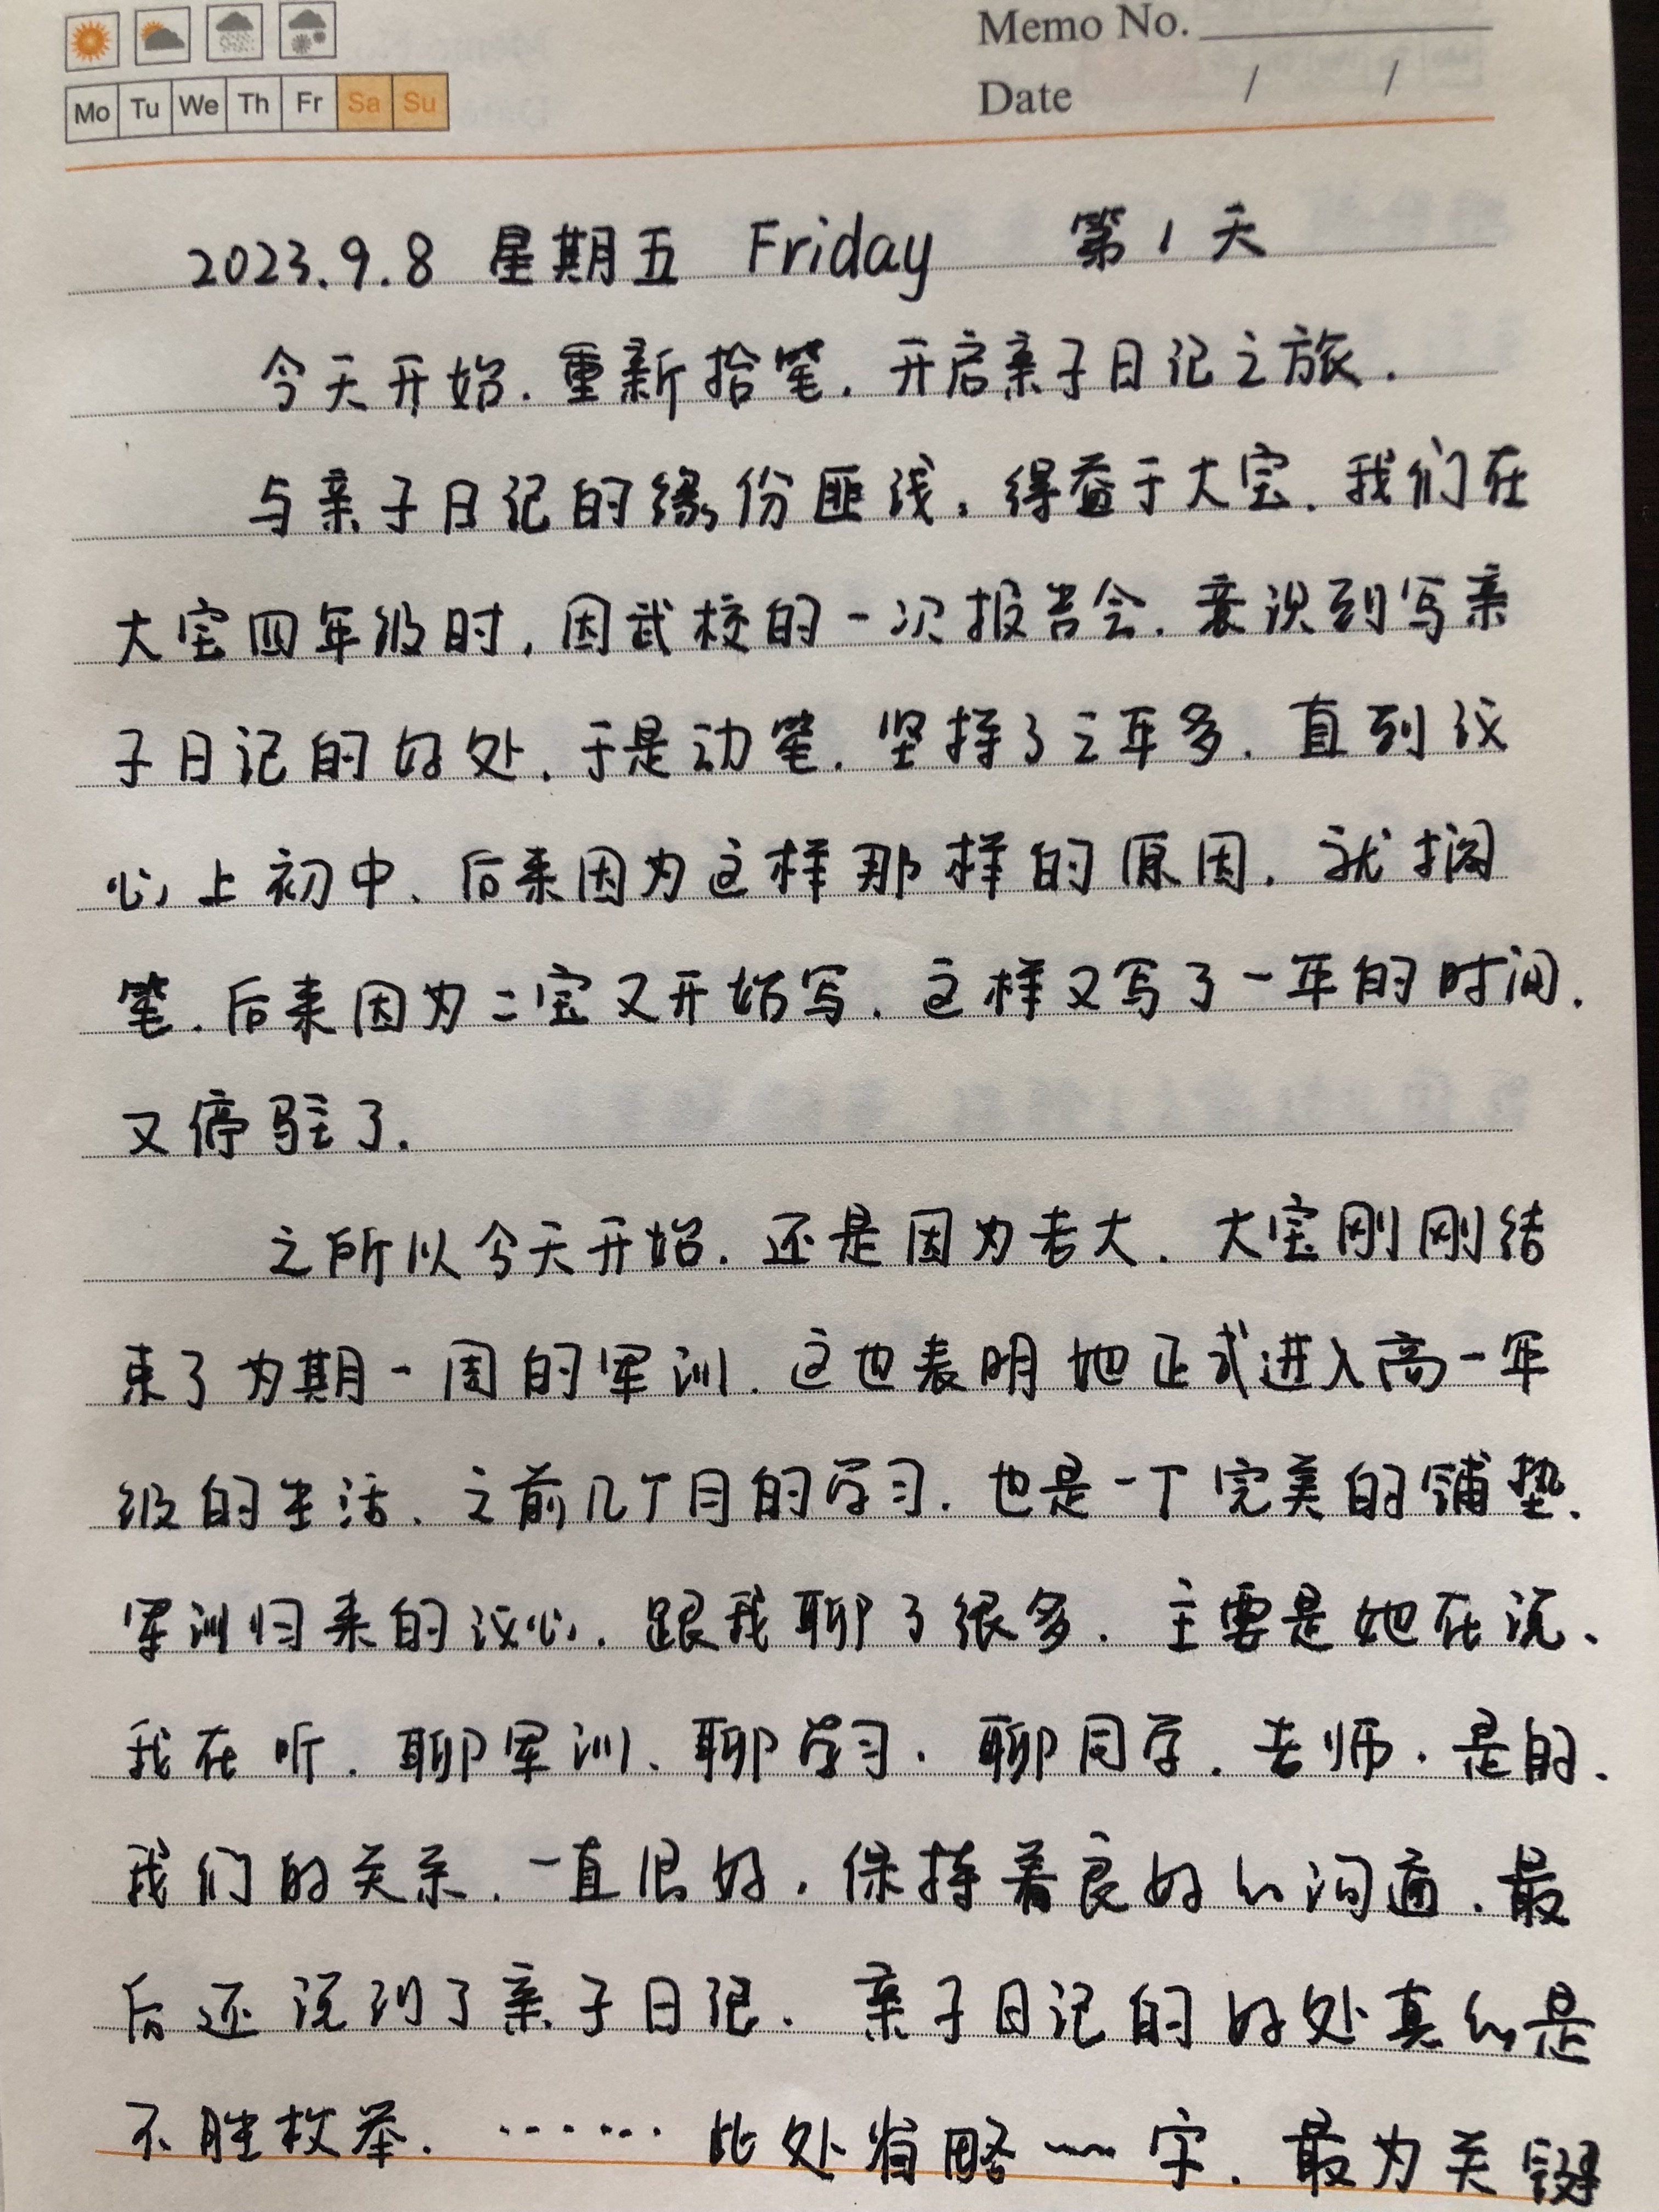 Memo No.
Mo Tu We Th Fr Sa Su
Date / /
2023.9.8 星期五 Friday 第1天
今天开始.重新拾笔.开启亲子日记之旅.
与亲子日记的缘份匪浅.得益于大宝.我们在
大宝四年级时,因武校的一次报告会.意识到写亲
子日记的好处.于是动笔.坚持了三年多.直到汶
心上初中.后来因为这样那样的原因.就搁
笔.后来因为二宝又开始写.这样又写了一年的时间.
又停驻了.
之所以今天开始.还是因为老大.大宝刚刚结
束了为期一周的军训.这也表明她正式进入高一年
级的生活.之前几个月的学习.也是一个完美的铺垫.
军训归来的汶心.跟我聊了很多.主要是她在说、
我在听.聊军训、聊学习.聊同学.老师.是的.
我们的关系.一直很好.保持着良好的沟通.最
后还说到了亲子日记.亲子日记的好处真的是
不胜枚举.……此处省略~~字.最为关键